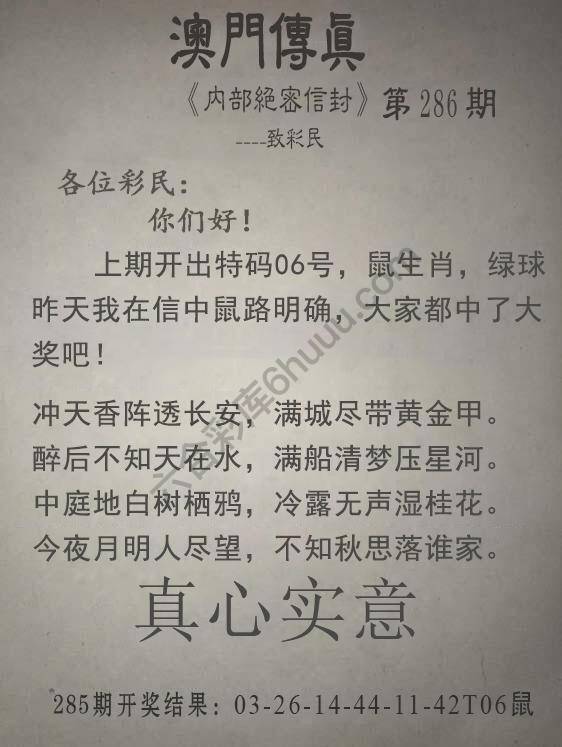 澳門傳眞
《内部絕密信封》第286期
----致彩民
各位彩民：
你们好！
上期开出特码06号，鼠生肖，绿球
昨天我在信中鼠路明确，大家都中了大
奖吧！
冲天香阵透长安，满城尽带黄金甲。
醉后不知天在水，满船清梦压星河。
中庭地白树栖鸦，冷露无声湿桂花。
今夜月明人尽望，不知秋思落谁家。
真心实意
285期开奖结果：03-26-14-44-11-42T06鼠
六合彩库6huuu.com